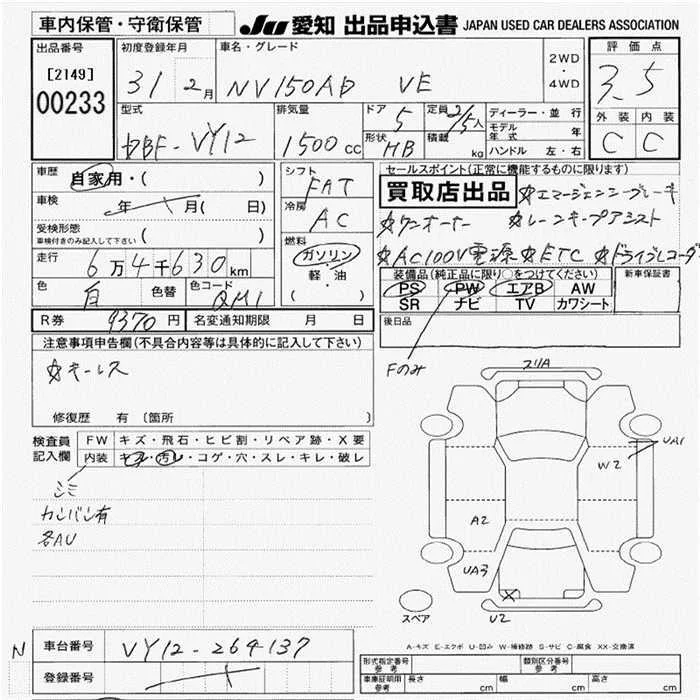 車内保管・守衛保管 JU 愛知 出品申込書 JAPAN USED CAR DEALERS ASSOCIATION
出品番号 初度登録年月 車名・グレード 2WD・4WD 評価点
[2149] 00233 31 2月 NV150AD VE 3.5
型式 排気量 ドア 定員 ディーラー・並行 外装 内装
DBF-VY12 1500cc 5 2/5人 モデル年式 年 C C
形状 HB 積載 kg ハンドル 左・右
車歴 自家用・( ) シフト FAT セールスポイント(正常に機能するものに限ります)
車検 年 月( 日) 冷房 AC 買取店出品 ☆エマージェンシーブレーキ
受検形態 車検付きのみ記入して下さい ( ) 燃料 ☆ワンオーナー ☆レーンキープアシスト
走行 6万4千630km ガソリン ☆AC100V電源 ☆ETC ☆ドライブレコーダ
色 白 色替 色コード QM1 軽・油 ( )
装備品(純正品に限り○をつけてください) 新車保証書
PS PW エアB AW
SR ナビ TV カワシート
R券 9370円 名変通知期限 月 日 後日品
注意事項申告欄(不具合内容等は具体的に記入して下さい) Fのみ
☆キーレス
修復歴 有 〔箇所 〕
検査員記入欄 FW キズ・飛石・ヒビ割・リペア跡・X要
内装 キズ・汚レ・コゲ・穴・スレ・キレ・破レ
シミ
カンバン有
各AU
スリA
UA1
W2
A2
UA3
X
U2
スペア
A-キズ E-エクボ U-凹み W-補修跡 S-サビ C-腐食 XX-交換済
N 車台番号 VY12-264137
登録番号
形式指定番号 参考 類別区分番号 参考
車庫証明用 参考 長さ cm 幅 cm 高さ cm